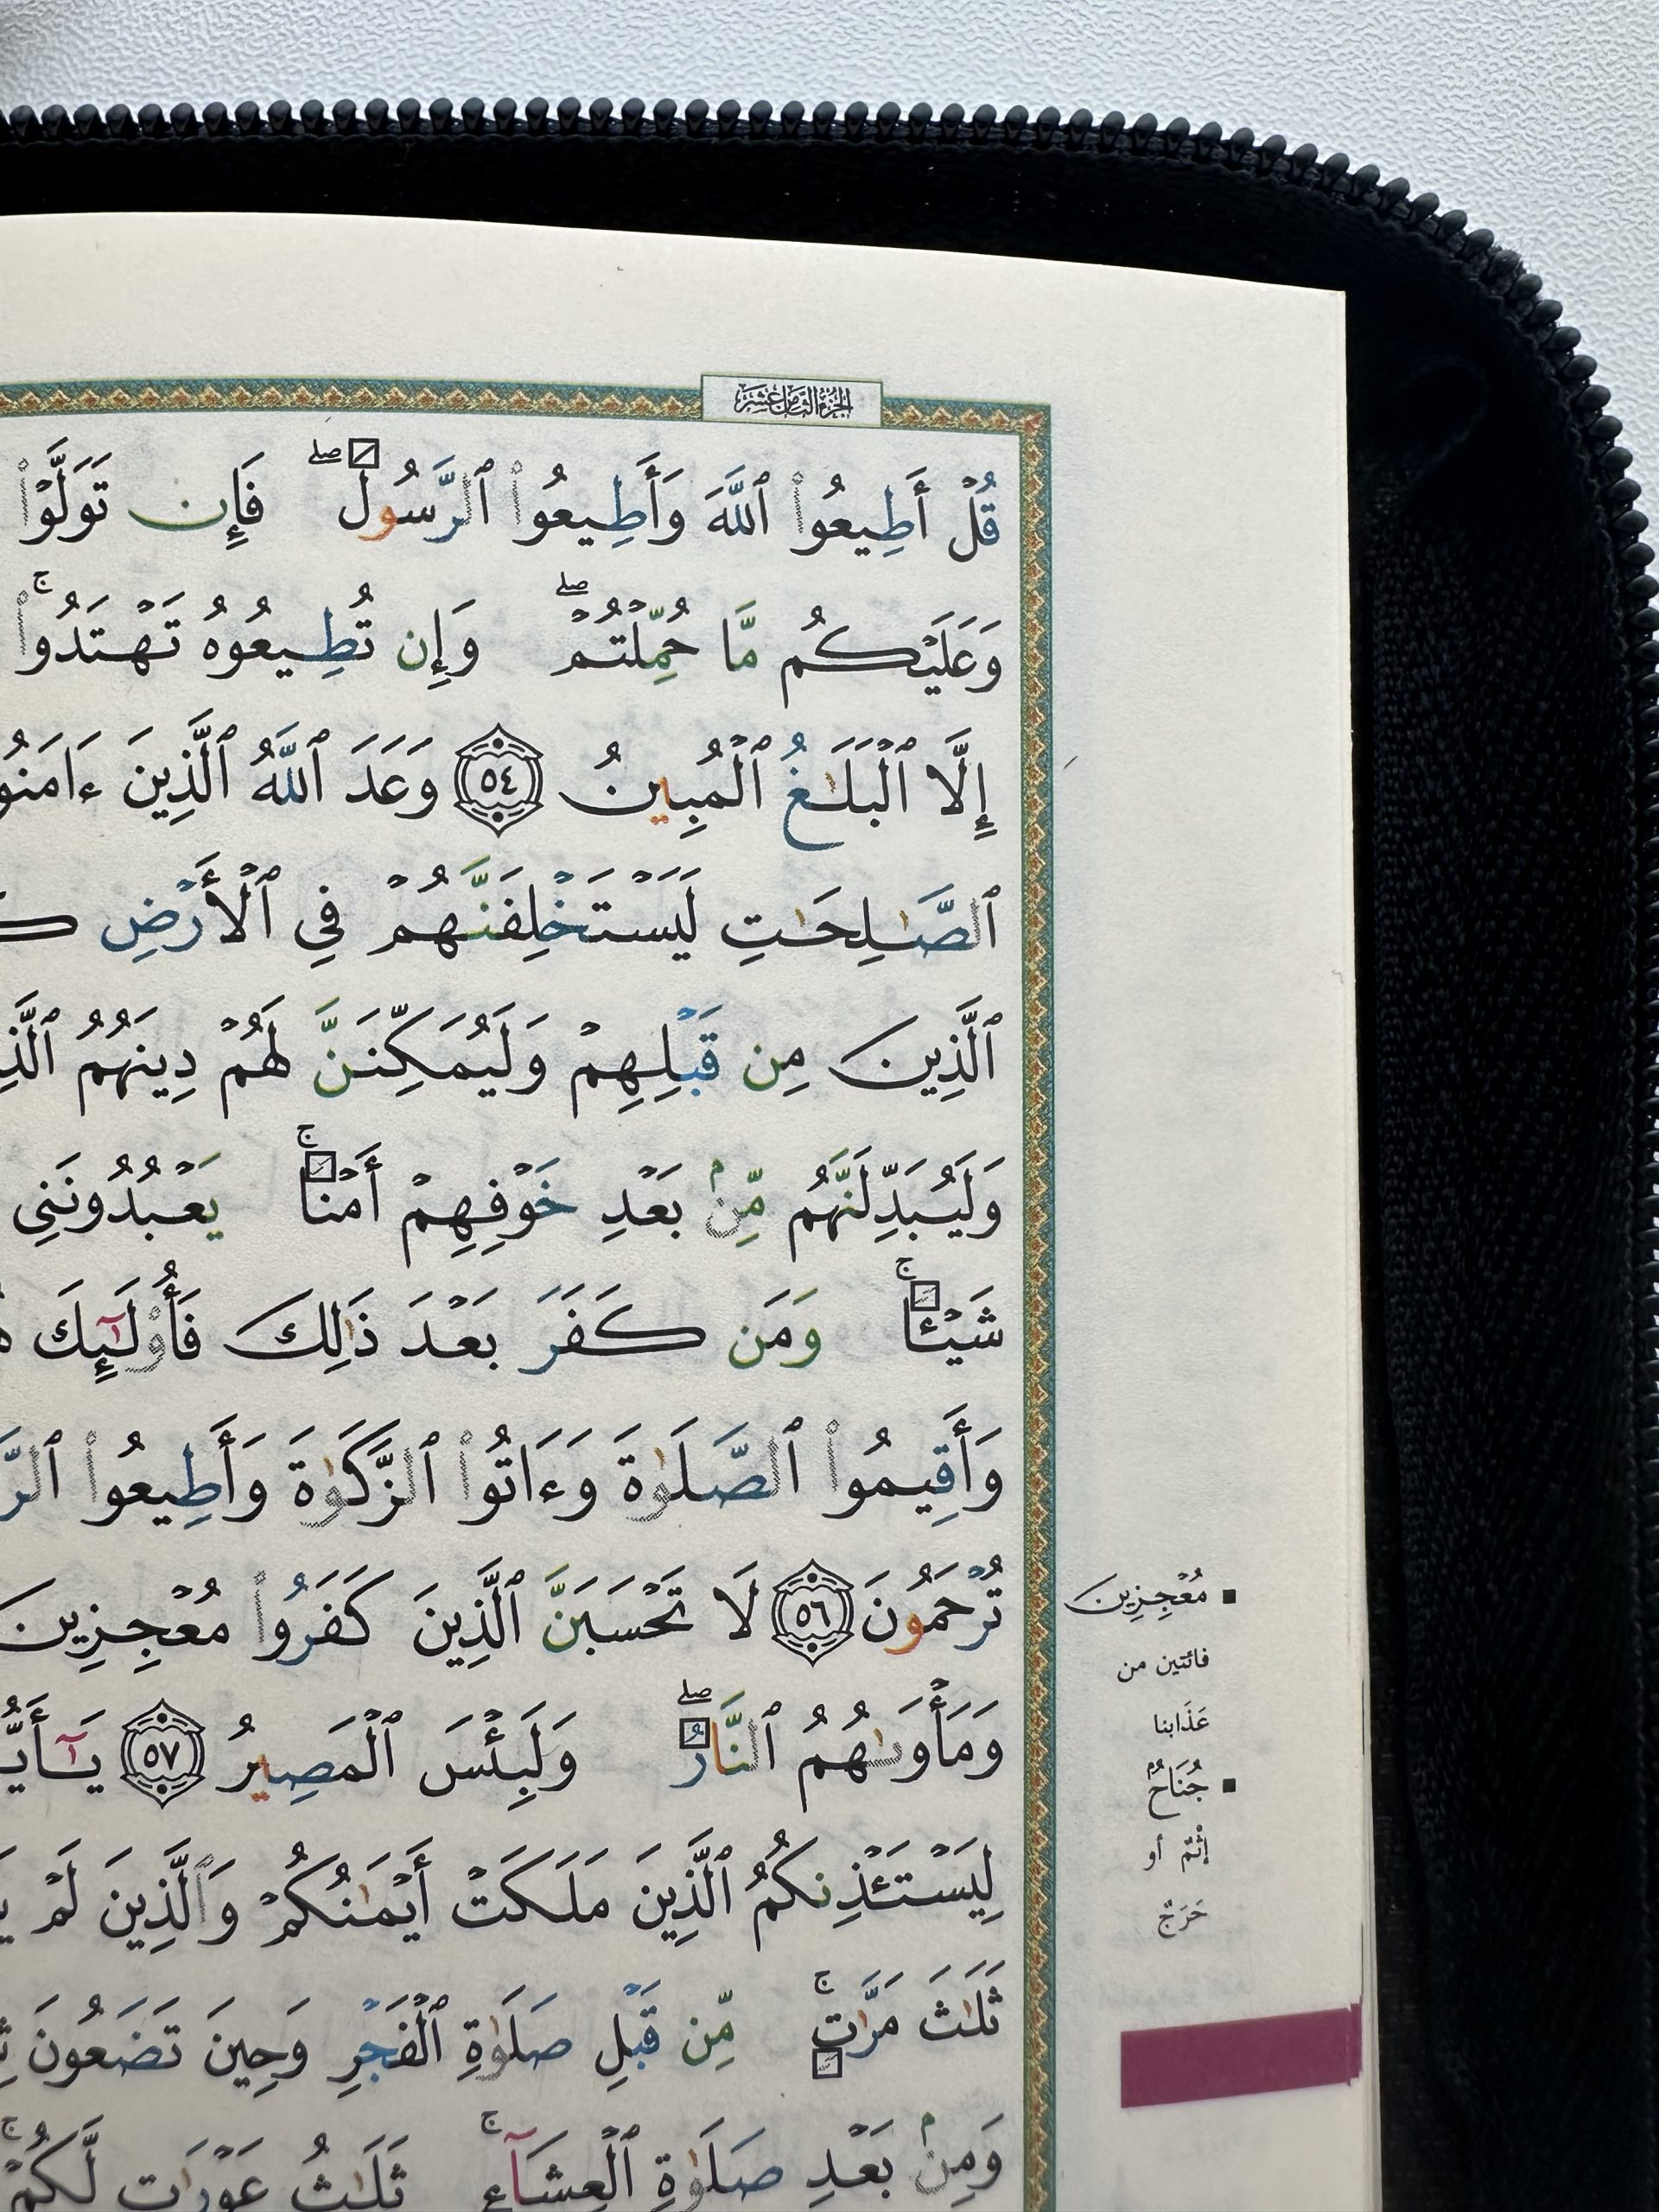 الجزء الثامن عشر
قُلْ أَطِيعُوا۟ ٱللَّهَ وَأَطِيعُوا۟ ٱلرَّسُولَ ۖ فَإِن تَوَلَّوْا۟
وَعَلَيْكُم مَّا حُمِّلْتُمْ ۖ وَإِن تُطِيعُوهُ تَهْتَدُوا۟ ۚ
إِلَّا ٱلْبَلَٰغُ ٱلْمُبِينُ ٥٤ وَعَدَ ٱللَّهُ ٱلَّذِينَ ءَامَنُوا
ٱلصَّٰلِحَٰتِ لَيَسْتَخْلِفَنَّهُمْ فِى ٱلْأَرْضِ
ٱلَّذِينَ مِن قَبْلِهِمْ وَلَيُمَكِّنَنَّ لَهُمْ دِينَهُمُ
وَلَيُبَدِّلَنَّهُم مِّنۢ بَعْدِ خَوْفِهِمْ أَمْنًا ۚ يَعْبُدُونَنِى
شَيْـًٔا ۚ وَمَن كَفَرَ بَعْدَ ذَٰلِكَ فَأُو۟لَٰٓئِكَ
وَأَقِيمُوا۟ ٱلصَّلَوٰةَ وَءَاتُوا۟ ٱلزَّكَوٰةَ وَأَطِيعُوا۟
تُرْحَمُونَ ٥٦ لَا تَحْسَبَنَّ ٱلَّذِينَ كَفَرُوا۟ مُعْجِزِينَ
وَمَأْوَىٰهُمُ ٱلنَّارُ ۖ وَلَبِئْسَ ٱلْمَصِيرُ ٥٧
لِيَسْتَـْٔذِنكُمُ ٱلَّذِينَ مَلَكَتْ أَيْمَٰنُكُمْ وَٱلَّذِينَ لَمْ
ثَلَٰثَ مَرَّٰتٍ ۚ مِّن قَبْلِ صَلَوٰةِ ٱلْفَجْرِ وَحِينَ تَضَعُونَ
وَمِنۢ بَعْدِ صَلَوٰةِ ٱلْعِشَآءِ ۚ ثَلَٰثُ عَوْرَٰتٍ لَّكُمْ ۚ
▪ مُعْجِزِينَ
فائتين من
عَذَابنا
▪ جُنَاحٌ
إثمٌ أو
حَرَجٌ